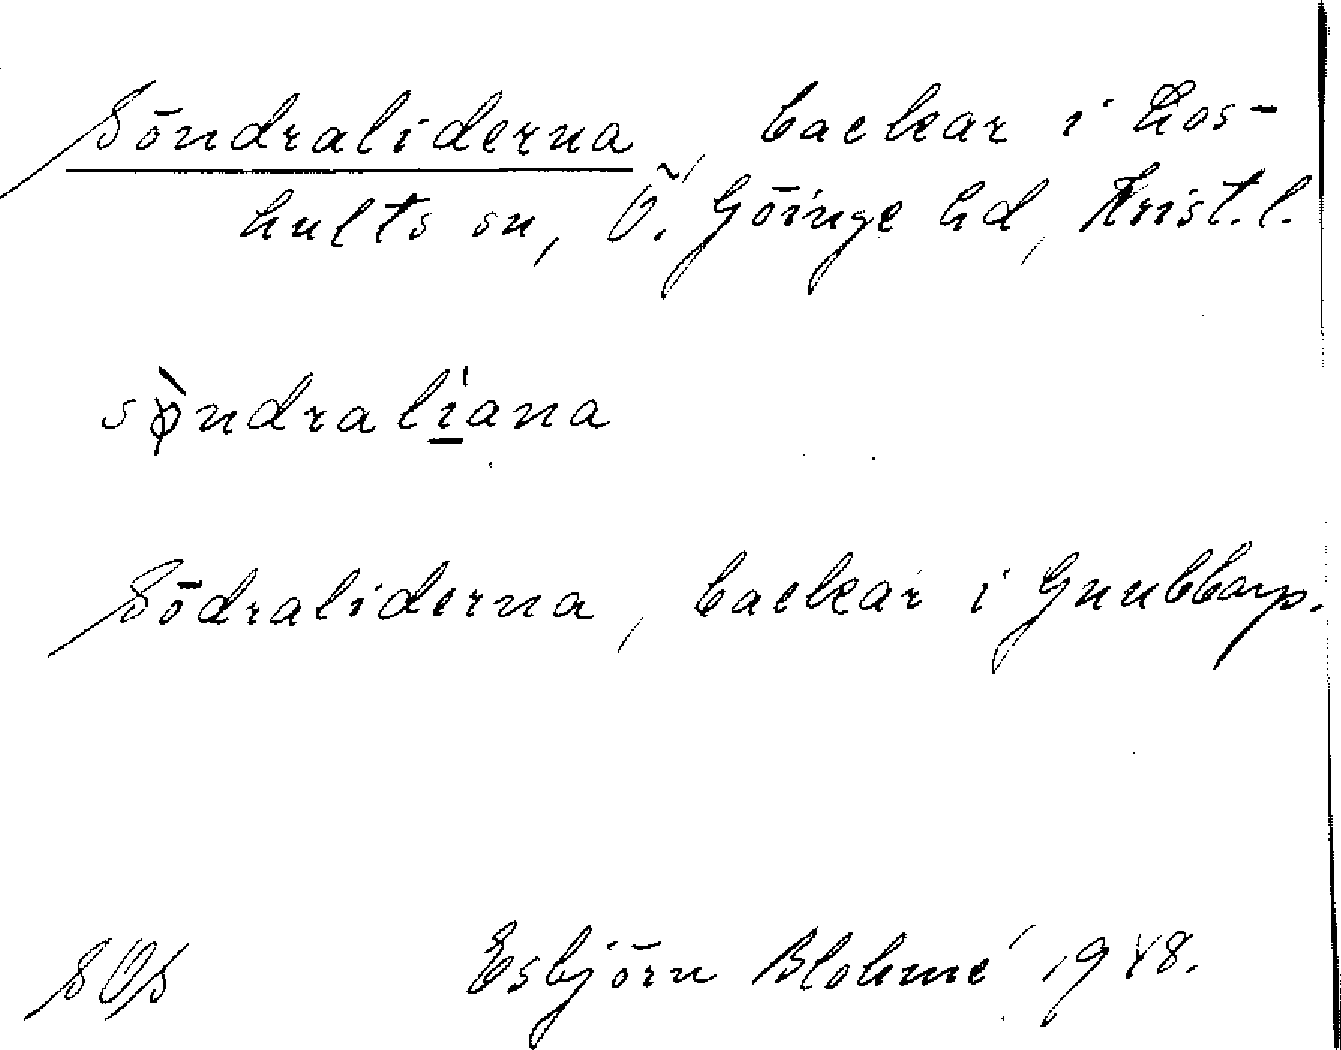 Söndraliderna, backar i Hos-
hults sn, Ö. Göinge hd, Krist. l.
sø̀ndralíana
Södraliderna, backar i Gnubbarp.
SOS Esbjörn Blohmé 1948.